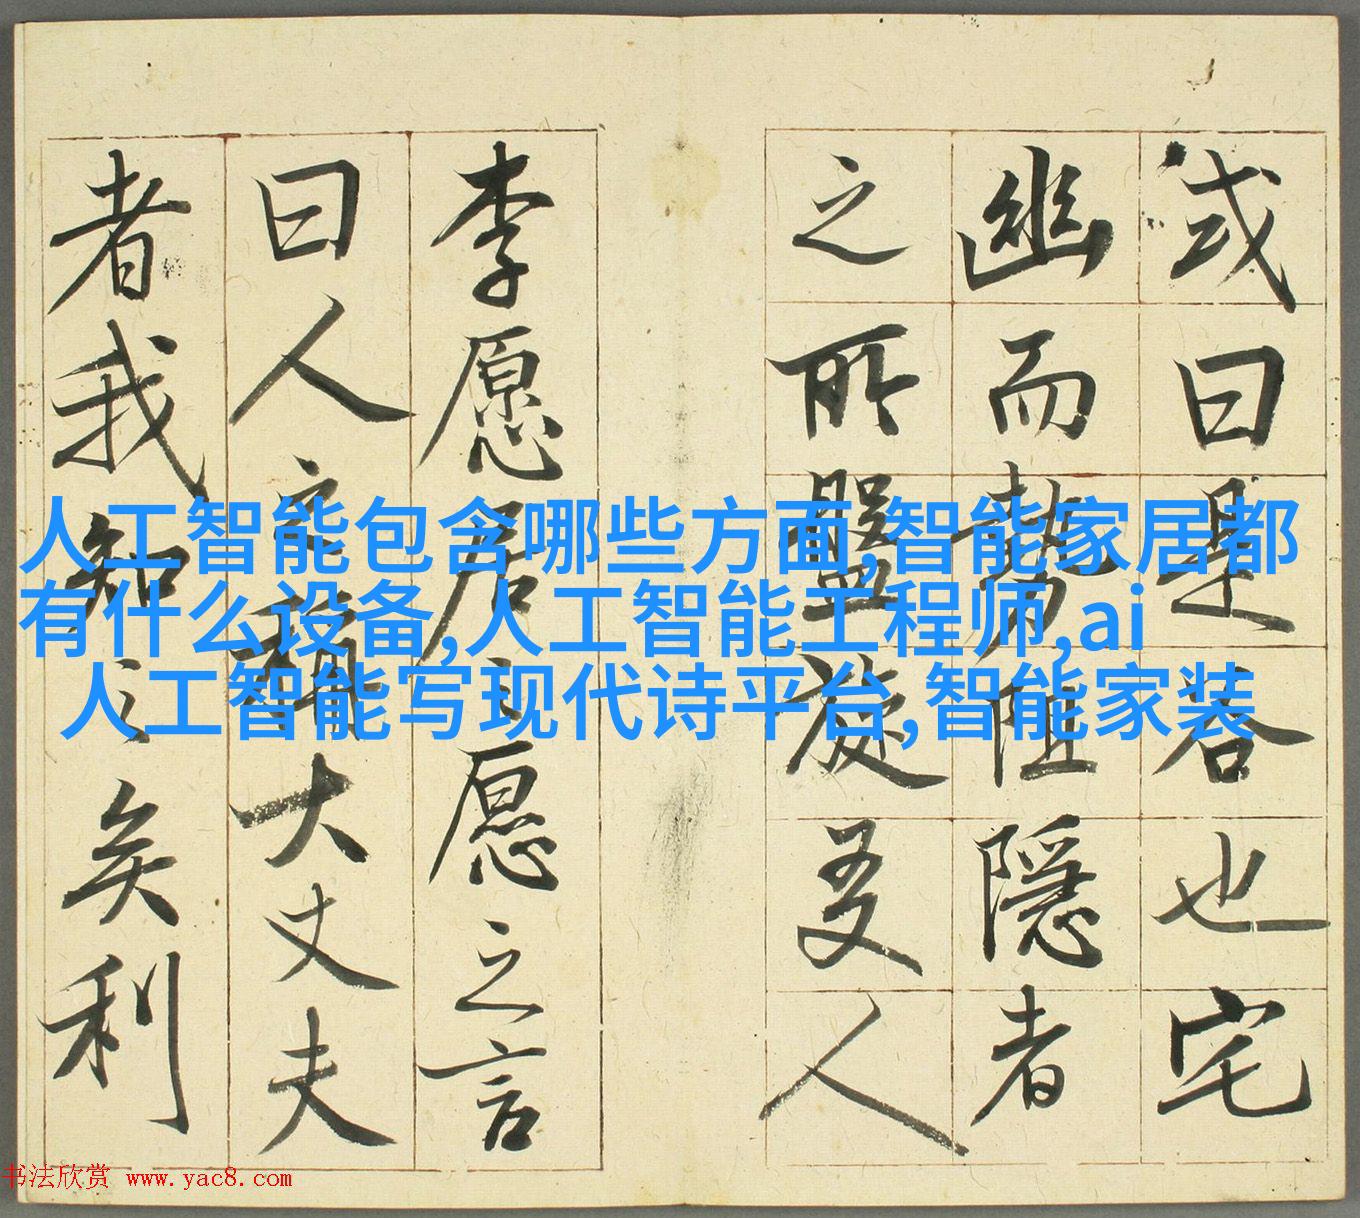 或曰是谷也宅
幽而勢阻隱者
之所盤旋友人
李愿居之愿之言
曰人之稱大丈夫
者我知之矣利
人工智能包含哪些方面,智能家居都
有什么设备,人工智能工程师,ai
人工智能写现代诗平台,智能家装
书法欣赏 www.yac8.com